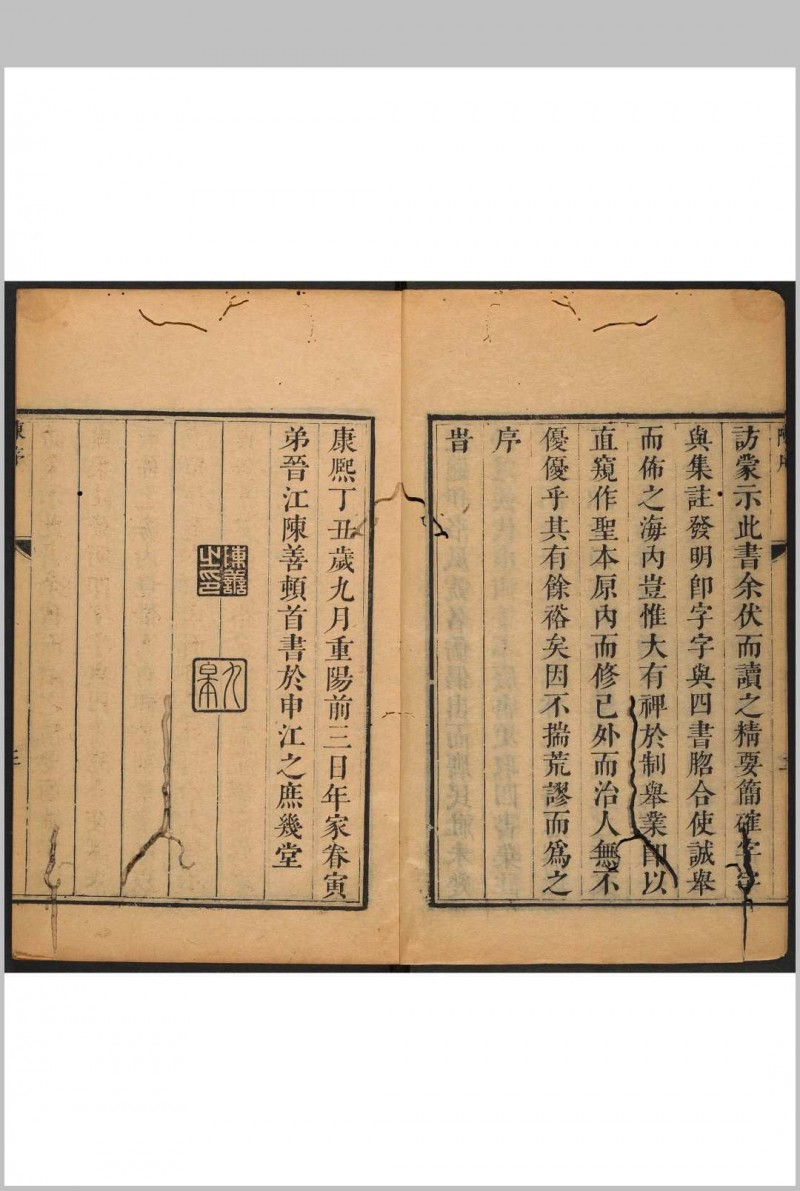 訪蒙示此書余伏而讀之精要簡確字字
與集註發明卽字字與四書脗合使誠舉
而佈之海內豈惟大有裨於制舉業卽以
直窺作聖本原內而修已外而治人無不
優優乎其有餘裕矣因不揣荒謬而爲之
序
旹
康熙丁丑歲九月重陽前三日年家眷寅
弟晉江陳善頓首書於申江之庶幾堂
陳善之印
陳序
三